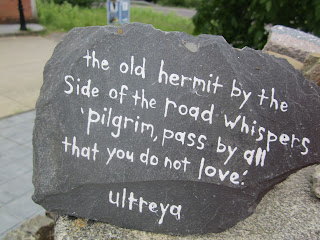 the old hermit by the
Side of the road whispers
'pilgrim, pass by all
that you do not love.'
ultreya